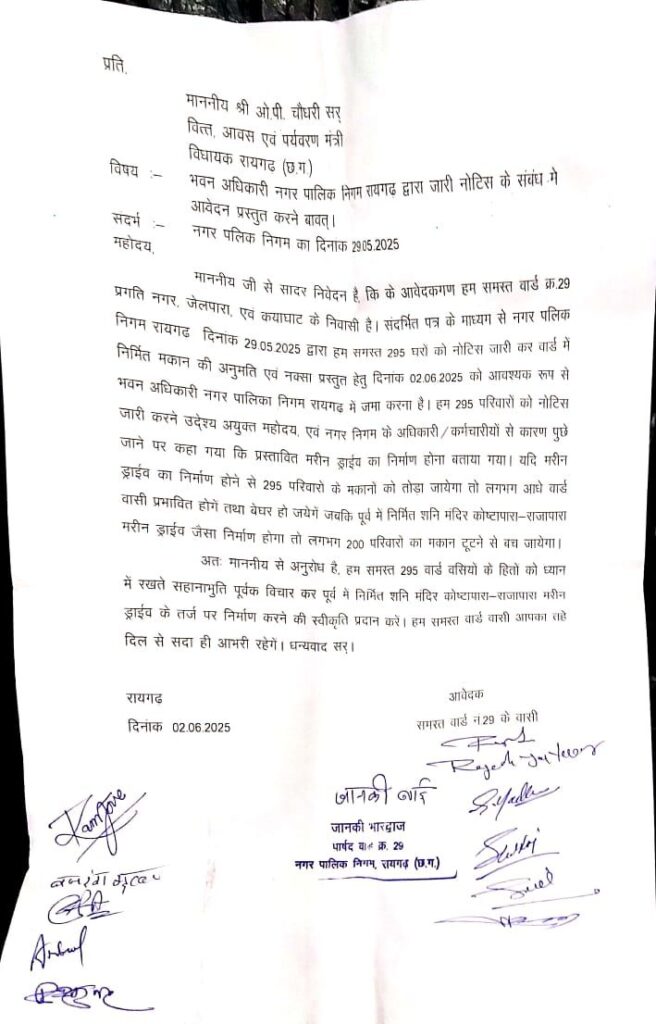 प्रति,
माननीय श्री ओ.पी. चौधरी सर्
वित्त, आवस एवं पर्यवरण मंत्री
विधायक रायगढ़ (छ.ग.)
विषय :– भवन अधिकारी नगर पालिक निगम रायगढ़ द्वारा जारी नोटिस के संबंध मे
आवेदन प्रस्तुत करने बावत्।
संदर्भ :– नगर पलिक निगम का दिनांक 29.05.2025
महोदय,
माननीय जी से सादर निवेदन है, कि के आवेदकगण हम समस्त वार्ड क्र.29
प्रगति नगर, जेलपारा, एवं कयाघाट के निवासी है। संदर्भित पत्र के माध्यम से नगर पलिक
निगम रायगढ दिनांक 29.05.2025 द्वारा हम समस्त 295 घरों को नोटिस जारी कर वार्ड में
निर्मित मकान की अनुमति एवं नक्सा प्रस्तुत हेतु दिनांक 02.06.2025 को आवश्यक रूप से
भवन अधिकारी नगर पालिका निगम रायगढ़ में जमा करना है। हम 295 परिवारों को नोटिस
जारी करने उदे्श्य अयुक्त महोदय, एवं नगर निगम के अधिकारी/कर्मचारीयों से कारण पुछे
जाने पर कहा गया कि प्रस्तावित मरीन ड्राईव का निर्माण होना बताया गया। यदि मरीन
ड्राईव का निर्माण होने से 295 परिवारो के मकानो को तोडा जायेगा तो लगभग आधे वार्ड
वासी प्रभावित होगें तथा बेघर हो जयेगें जबकि पूर्व में निर्मित शनि मंदिर कोष्टापारा–राजापारा
मरीन ड्राईव जैसा निर्माण होगा तो लगभग 200 परिवारों का मकान टूटने से बच जायेगा।
अतः माननीय से अनुरोध है, हम समस्त 295 वार्ड वसियों के हितों को ध्यान
में रखते सहानाभुति पूर्वक विचार कर पूर्व मे निर्मित शनि मंदिर कोष्टापारा–राजपारा मरीन
ड्राईव के तर्ज पर निर्माण करने की स्वीकृति प्रदान करे। हम समस्त वार्ड वासी आपका तहे
दिल से सदा ही आभरी रहेगें। धन्यवाद सर्।
रायगढ़
दिनांक 02.06.2025
आवेदक
समस्त वार्ड न.29 के वासी
जानकी बाई
जानकी भारद्वाज
पार्षद वार्ड क्र. 29
नगर पालिक निगम, रायगढ़ (छ.ग.)